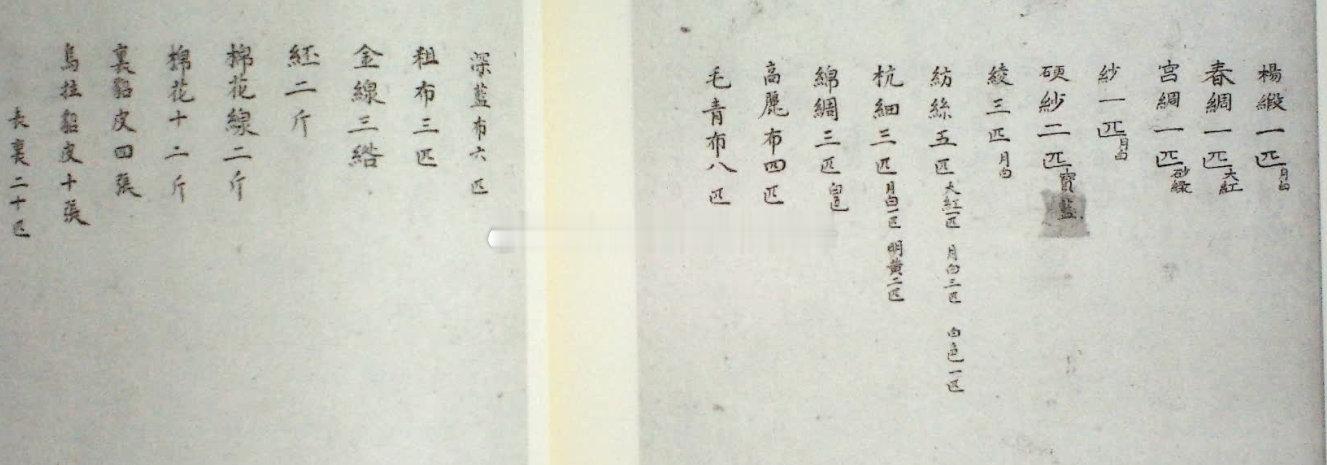 楊緞一匹月白
春綢一匹大紅
宮綢一匹砂綠
紗一匹月白
硬紗二匹寶藍
綾三匹月白
紡絲五匹大紅一匹 月白三匹 白色一匹
杭細三匹月白一匹 明黃二匹
綿綢三匹白色
高麗布四匹
毛青布八匹
深藍布六匹
粗布三匹
金線三綹
紝二斤
棉花線二斤
棉花十二斤
裏貂皮四張
烏拉貂皮十張
表裏二十匹